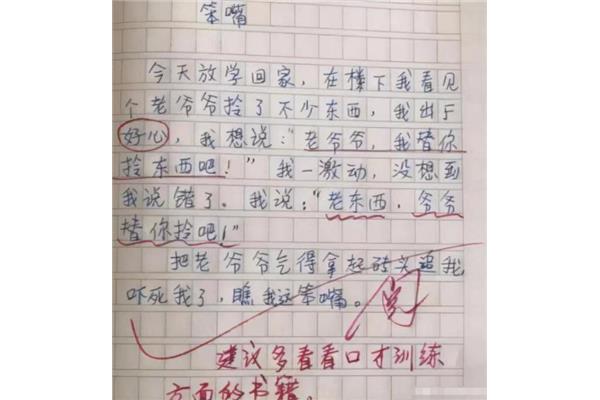 笨嘴
今天放学回家，在楼下我看见
个老爷爷拎了不少东西，我出于
好心，我想说："老爷爷，我替你
拎东西吧！"我一激动，没想到
我说错了。我说："老东西，爷爷
替你拎吧！"
把老爷爷气得拿起砖头追我
吓死我了，瞧我这笨嘴。
建议多看看口才训练
方面的书籍。